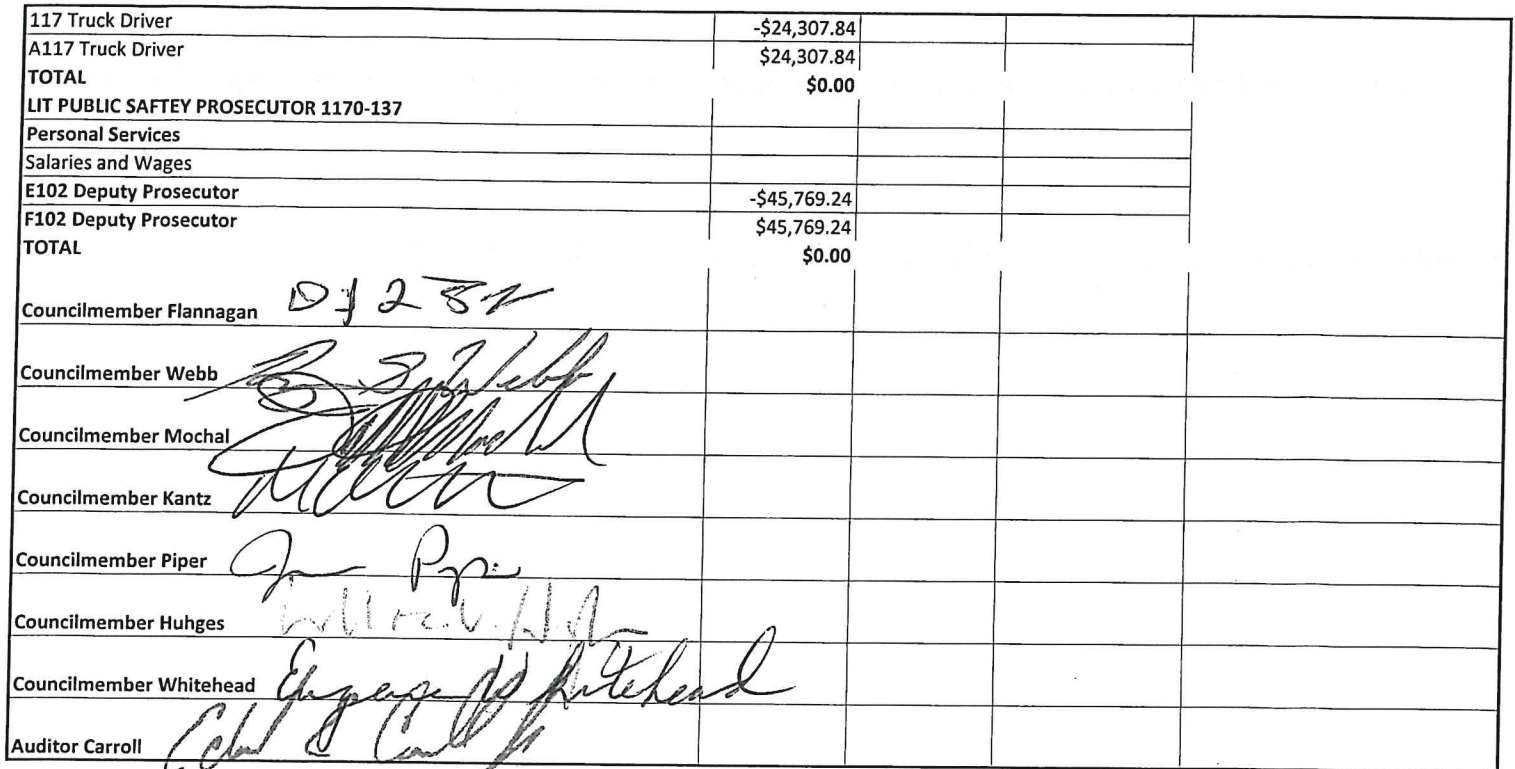 117 Truck Driver -$24,307.84
A117 Truck Driver $24,307.84
TOTAL $0.00
LIT PUBLIC SAFTEY PROSECUTOR 1170-137
Personal Services
Salaries and Wages
E102 Deputy Prosecutor -$45,769.24
F102 Deputy Prosecutor $45,769.24
TOTAL $0.00
Councilmember Flannagan
Councilmember Webb Webb
Councilmember Mochal
Councilmember Kantz
Councilmember Piper
Councilmember Huhges
Councilmember Whitehead Whitehead
Auditor Carroll